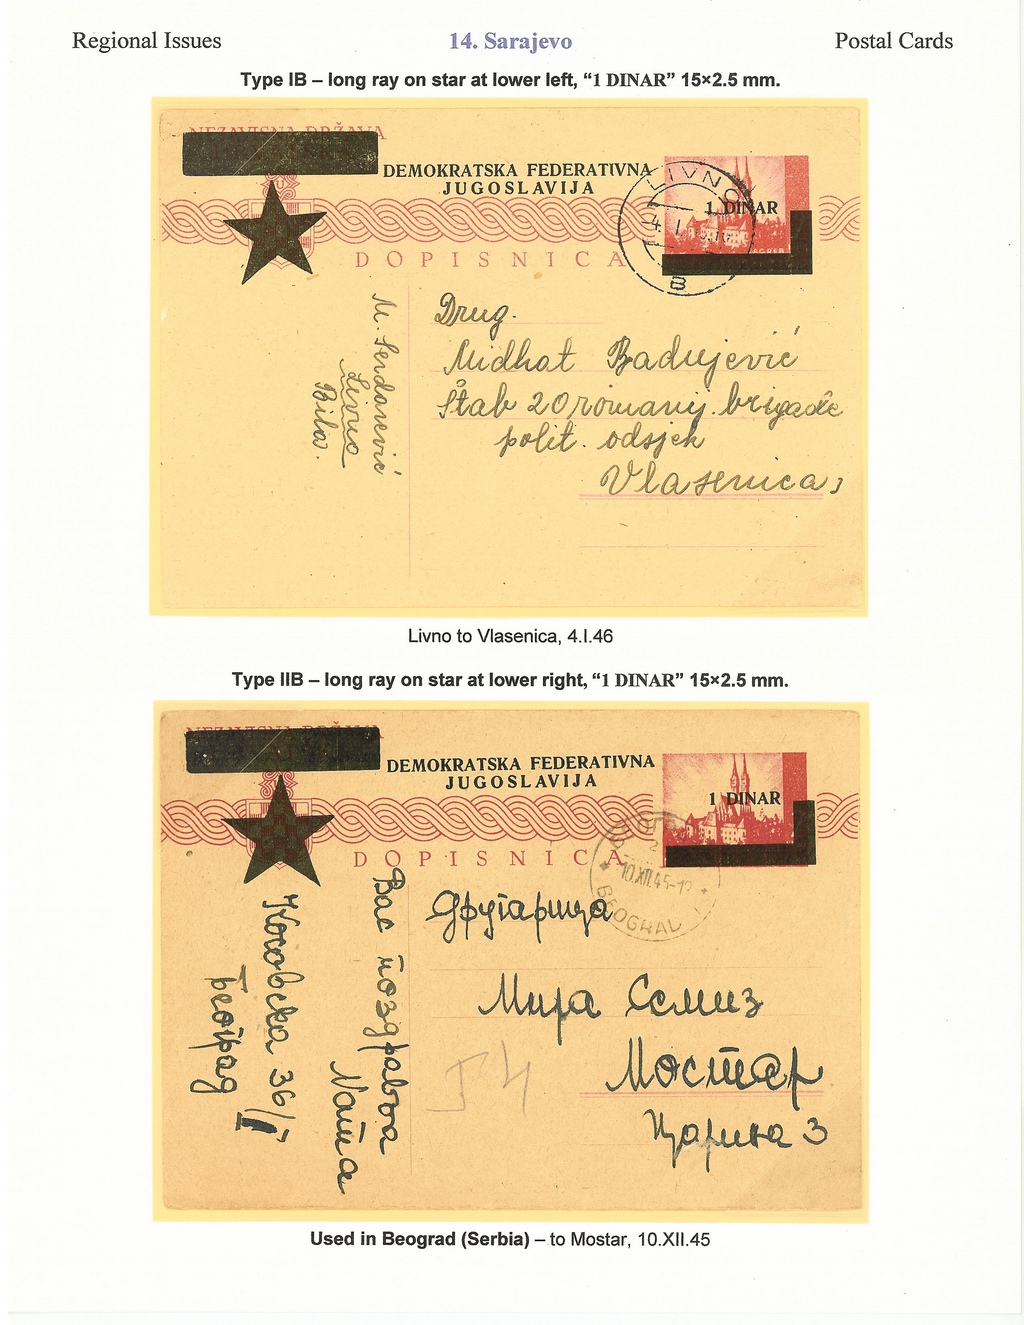 Regional Issues
14. Sarajevo
Postal Cards
Type IB – long ray on star at lower left, “1 DINAR” 15×2.5 mm.
NEZAVISNA DRŽAVA
DEMOKRATSKA FEDERATIVNA
JUGOSLAVIJA
1 DINAR
LIVNO
4. I.
B
DOPISNICA
Drug.
Midhat
Štab 20 romanij. brigade
polit. odsjek
Vlasenica
M. Serdarević
Livno
Bila.
Livno to Vlasenica, 4.I.46
Type IIB – long ray on star at lower right, “1 DINAR” 15×2.5 mm.
NEZAVISNA DRŽAVA
DEMOKRATSKA FEDERATIVNA
JUGOSLAVIJA
1 DINAR
DOPISNICA
10.XII.45-12
BEOGRAD 1
Другарица
Мира Семиз
Мостар
Царина 3
54
Вас поздравља
Ната
Косовска 36/I
Београд
Used in Beograd (Serbia) – to Mostar, 10.XII.45